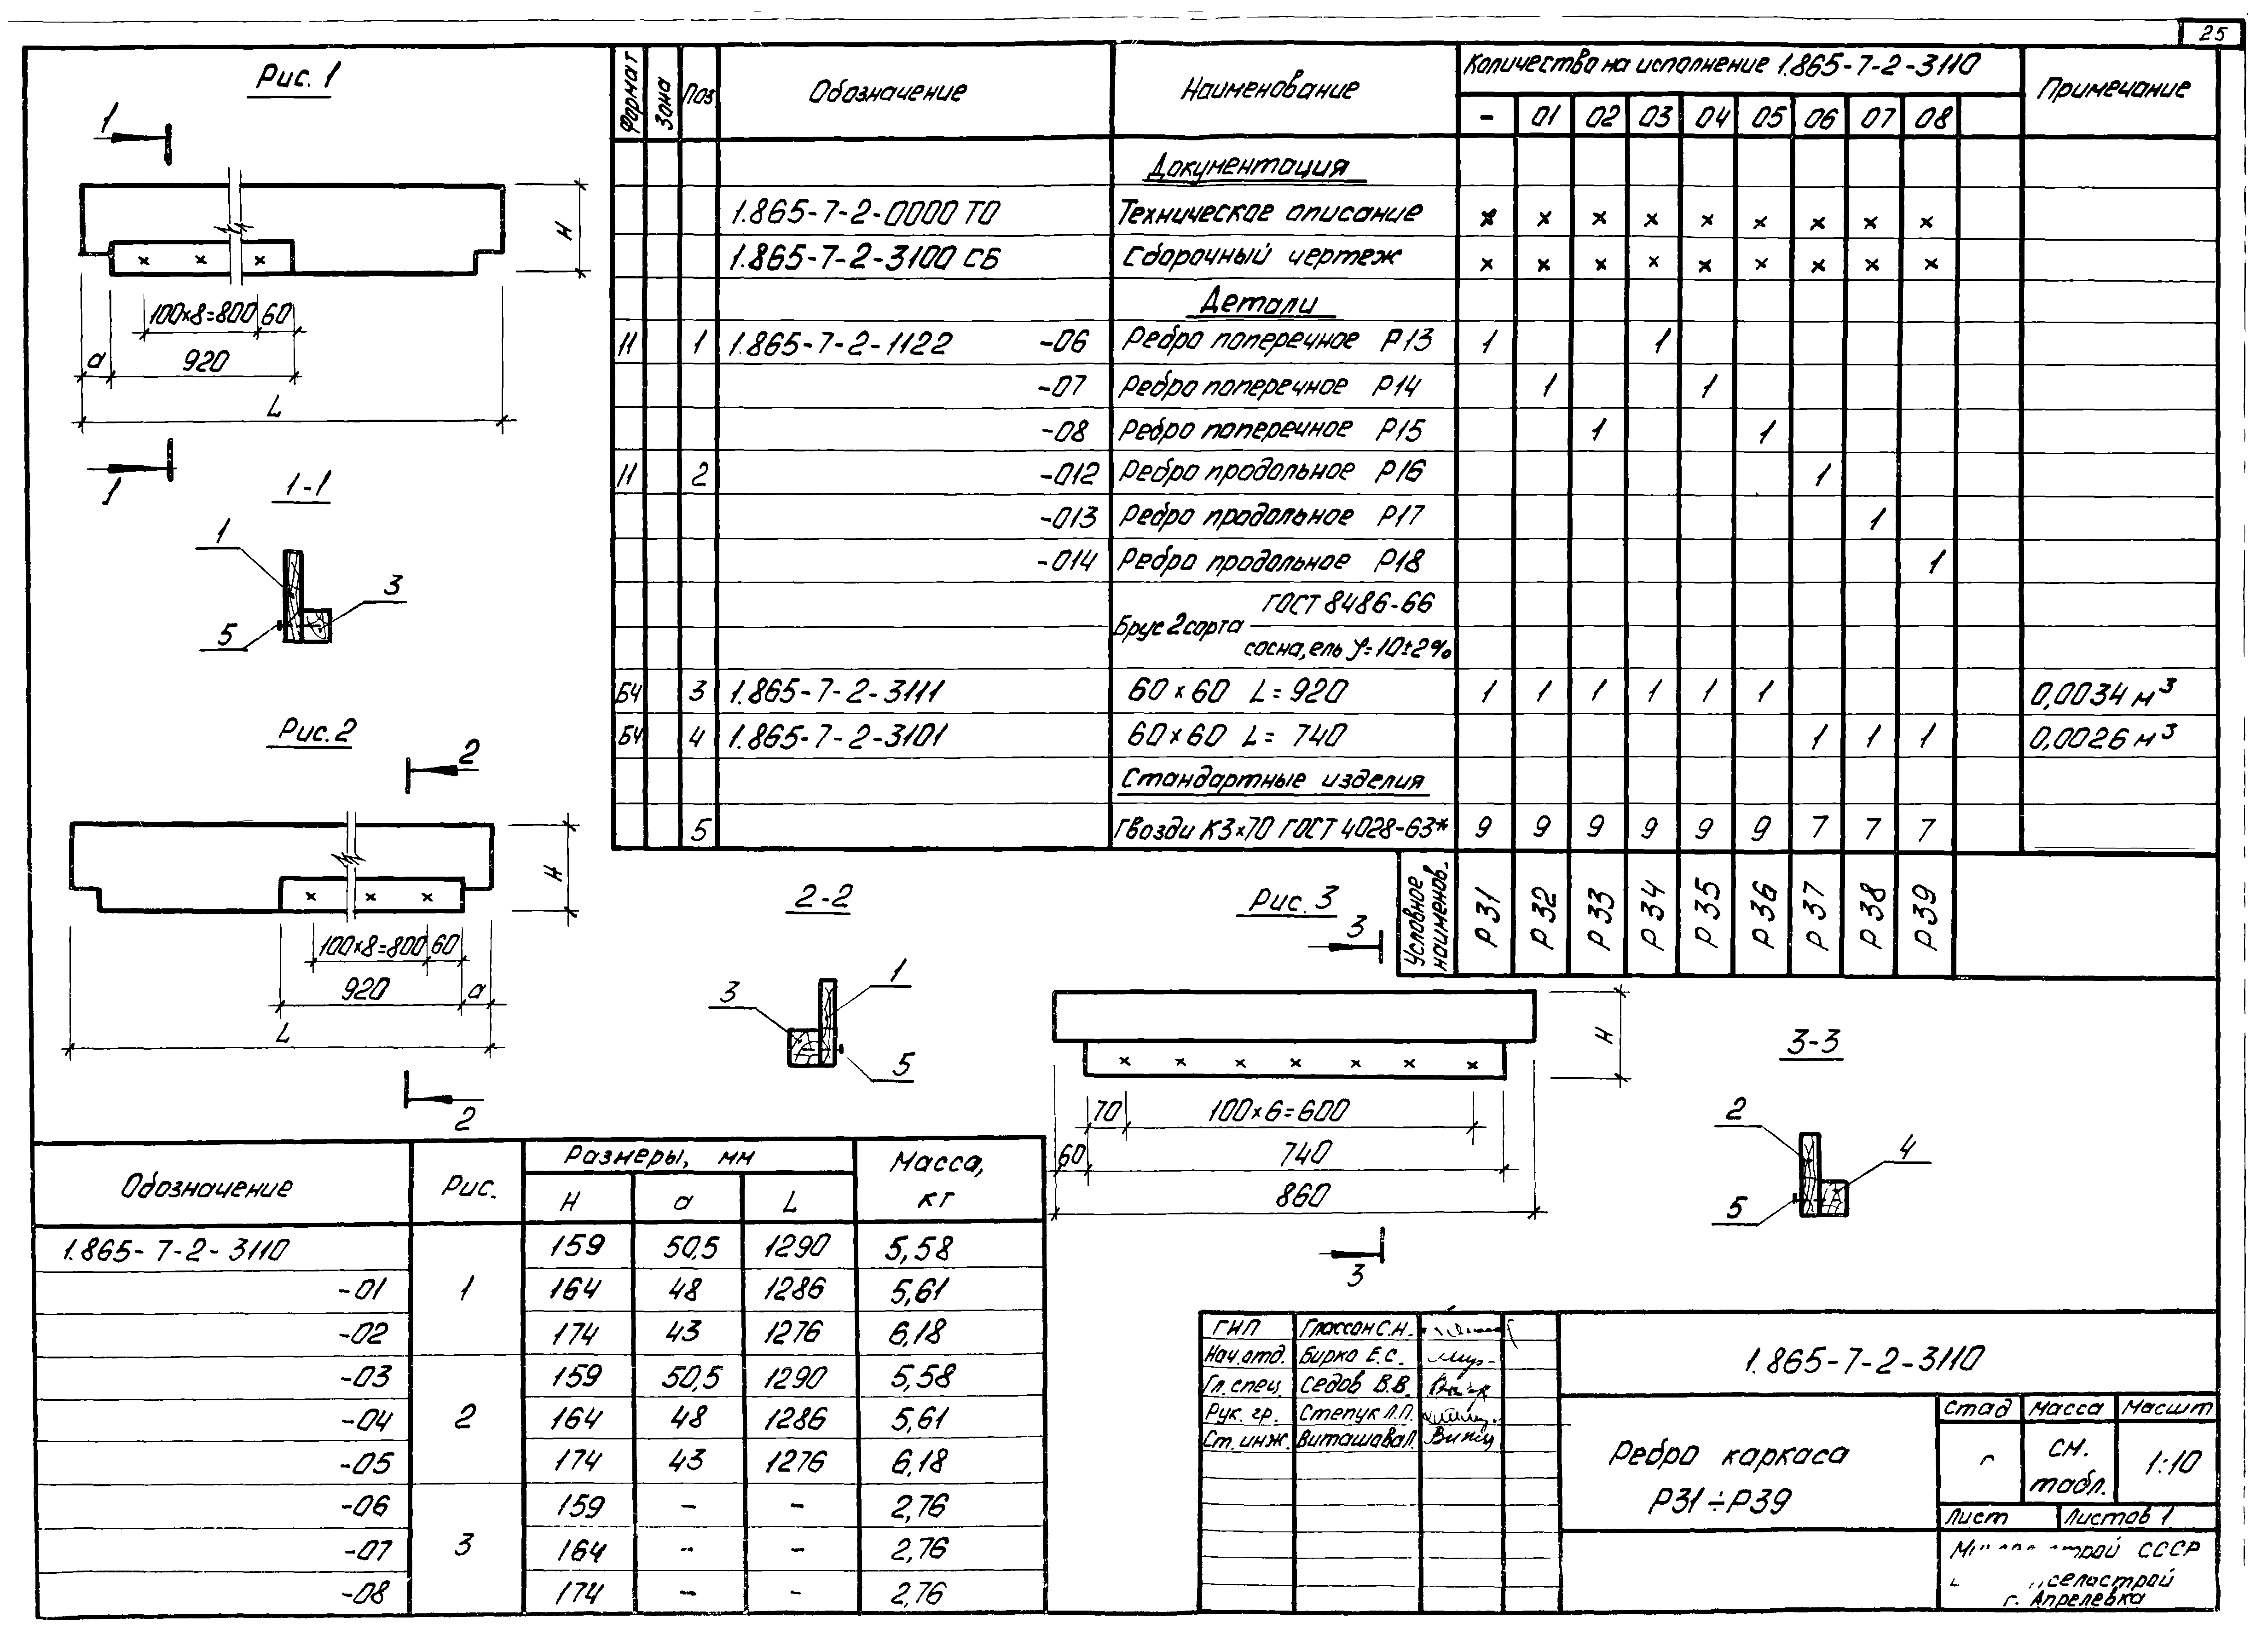 25
Рис. 1
1
H
100×8=800 60
a 920
L
1
1-1
1
3
5
Рис. 2
2
H
100×8=800 60
920 a
L
2
2-2
3
1
5
Рис. 3
3
H
70 100×6=600
60 740
860
3
3-3
2
4
5
Формат Зона Поз Обозначение Наименование Количество на исполнение 1.865-7-2-3110 Примечание
- 01 02 03 04 05 06 07 08
Документация
1.865-7-2-0000 ТО Техническое описание × × × × × × × × ×
1.865-7-2-3100 СБ Сборочный чертеж × × × × × × × × ×
Детали
11 1 1.865-7-2-1122 -06 Ребро поперечное Р13 1 1
-07 Ребро поперечное Р14 1 1
-08 Ребро поперечное Р15 1 1
11 2 -012 Ребро продольное Р16 1
-013 Ребро продольное Р17 1
-014 Ребро продольное Р18 1
Брус 2 сорта ГОСТ 8486-66
сосна, ель φ=10±2%
БЧ 3 1.865-7-2-3111 60×60 L=920 1 1 1 1 1 1 0,0034 м³
БЧ 4 1.865-7-2-3101 60×60 L= 740 1 1 1 0,0026 м³
Стандартные изделия
5 Гвозди К3×70 ГОСТ 4028-63* 9 9 9 9 9 9 7 7 7
Условное наименов. Р31 Р32 Р33 Р34 Р35 Р36 Р37 Р38 Р39
Обозначение Рис. Размеры, мм Масса, кг
H a L
1.865-7-2-3110 159 50,5 1290 5,58
-01 1 164 48 1286 5,61
-02 174 43 1276 6,18
-03 159 50,5 1290 5,58
-04 2 164 48 1286 5,61
-05 174 43 1276 6,18
-06 159 - - 2,76
-07 3 164 - - 2,76
-08 174 - - 2,76
ГИП Глассон С.Н.
Нач.отд. Бирко Е.С.
Гл.спец. Седов В.В.
Рук. гр. Степук Л.П.
Ст. инж. Виташова Л.
1.865-7-2-3110
Ребро каркаса
Р31÷Р39
Стад Масса Масшт
см. табл. 1:10
Лист Листов 1
СССР
г. Апрелевка